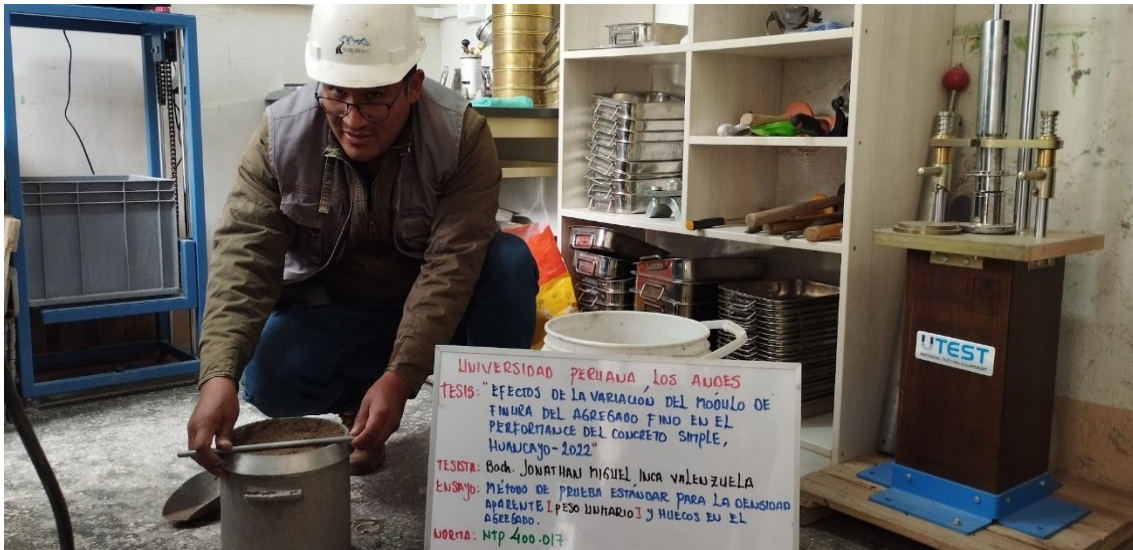 UTEST
MATERIAL TESTING EQUIPMENT
UNIVERSIDAD PERUANA LOS ANDES
TESIS: "EFECTOS DE LA VARIACIÓN DEL MÓDULO DE
FINURA DEL AGREGADO FINO EN EL
PERFORMANCE DEL CONCRETO SIMPLE,
HUANCAYO-2022"
TESISTA: Bach. JONATHAN MIGUEL INCA VALENZUELA
ENSAYO: MÉTODO DE PRUEBA ESTÁNDAR PARA LA DENSIDAD
APARENTE [PESO UNITARIO] Y HUECOS EN EL
AGREGADO.
NORMA: NTP 400.017